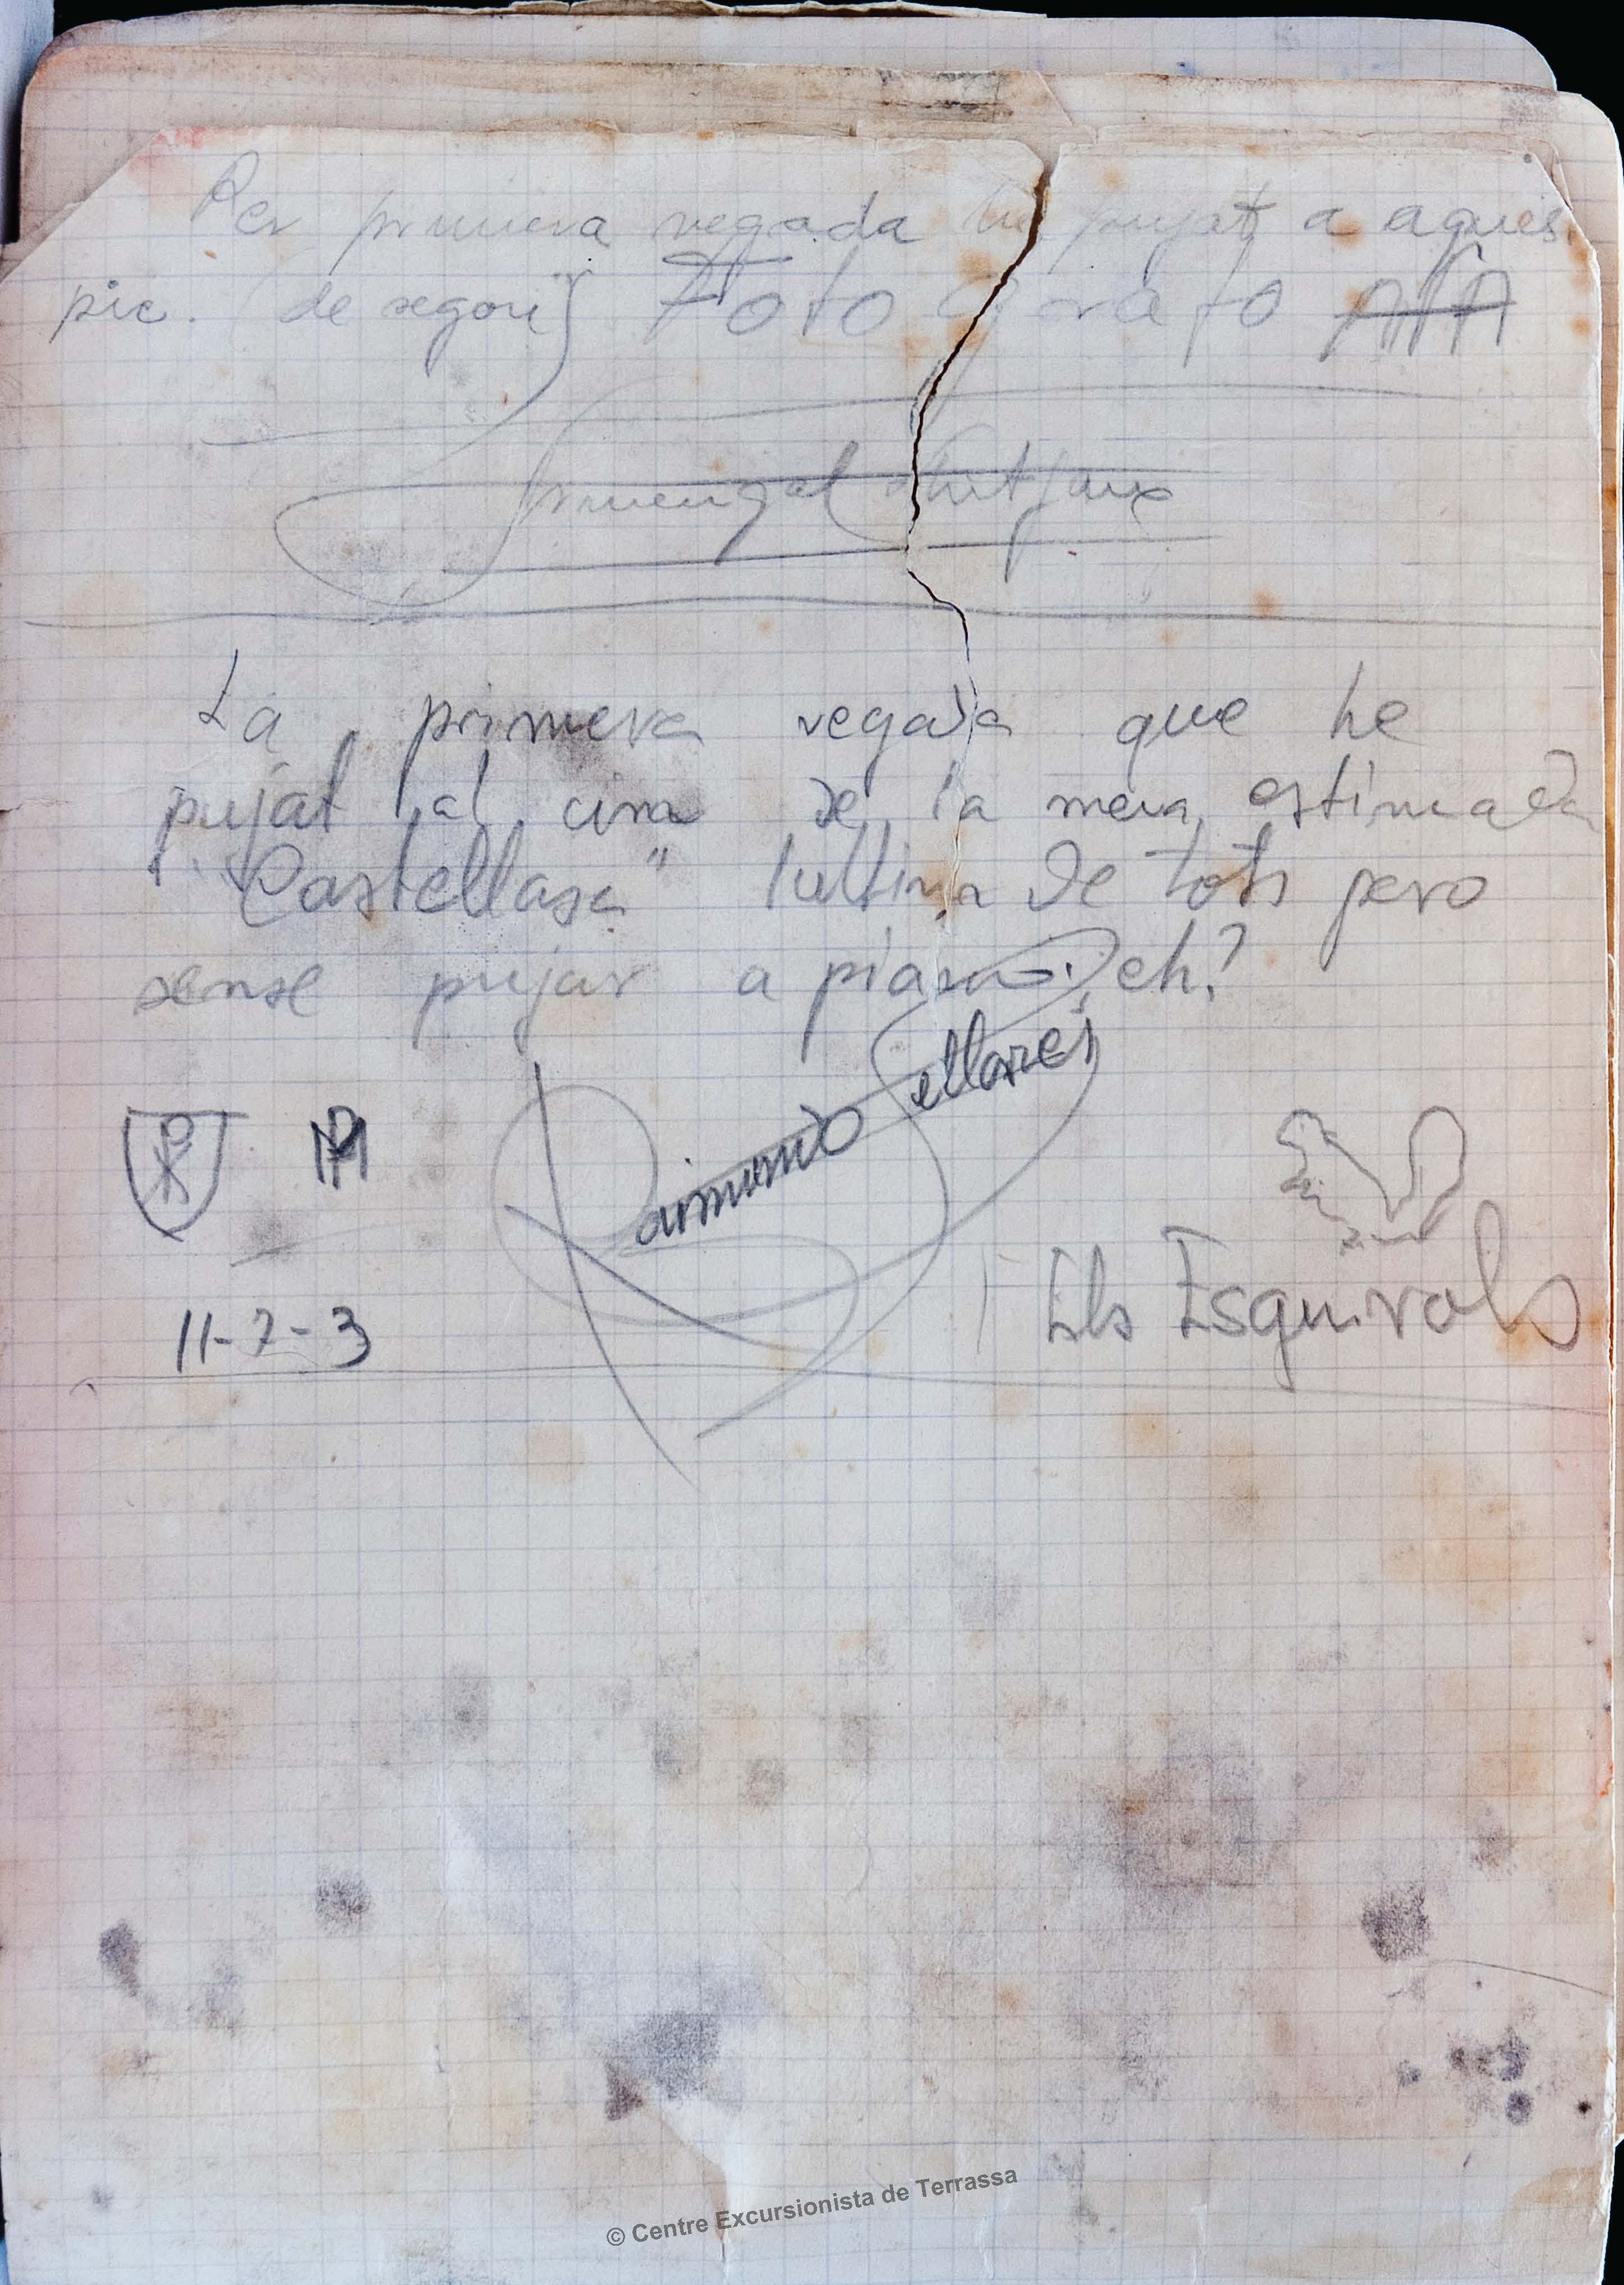 Per primera vegada he pujat a aques
pic. (de segon) Foto Grafo
La primera vegada que he
pujat al cim de la meva estimada
"Castellasa" lultim de tots pero
sense pujar a piano, eh?
Raimundo Sellarés
11-7-3
Els Esquirols
© Centre Excursionista de Terrassa